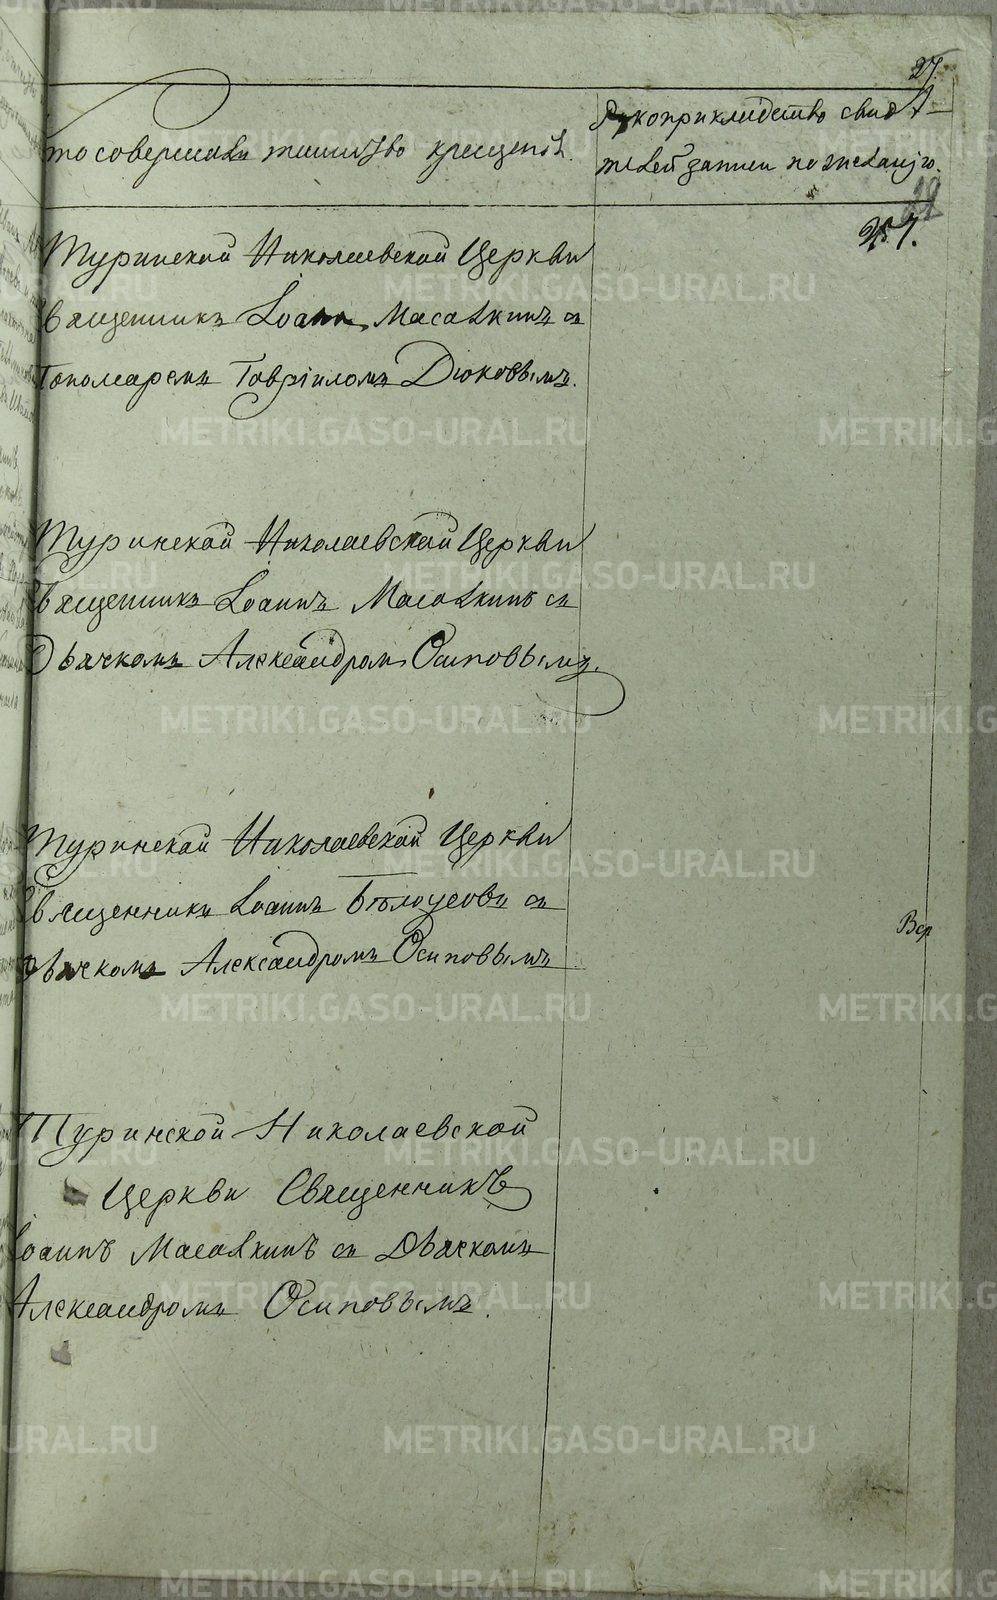 27.
то совершалъ таинство крещенія.
Рукоприкладство свидѣ-
телей записи по желанію.
22
257.
Туринской Николаевской Церкви
Священникъ Іоаннъ Масалкинъ съ
Пономаремъ Гавріиломъ Дюковымъ.
Туринской Николаевской Церкви
Священникъ Іоаннъ Масалкинъ съ
Дьячкомъ Александромъ Осиповымъ.
Туринской Николаевской Церкви
Священникъ Іоаннъ Бѣлоусовъ съ
Дьячкомъ Александромъ Осиповымъ
Вср
Туринской Николаевской
Церкви Священникъ
Іоаннъ Масалкинъ съ Дьячкомъ
Александромъ Осиповымъ.
METRIKI.GASO-URAL.RU